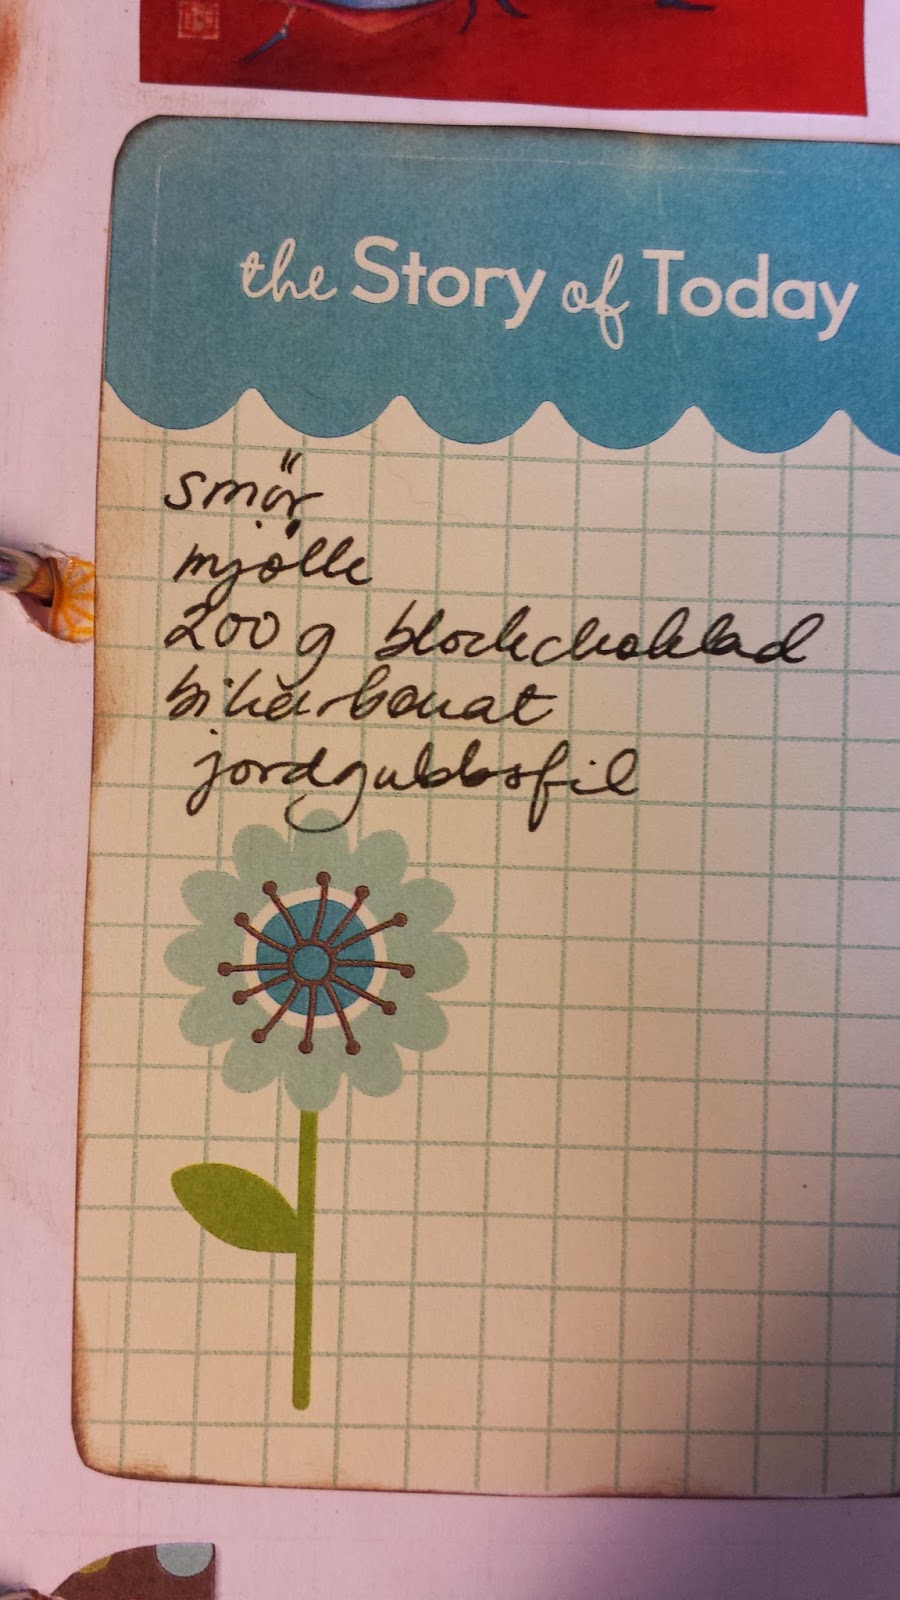 the Story of Today
smör
mjölk
200 g blockchoklad
bikarbonat
jordgubbsfil